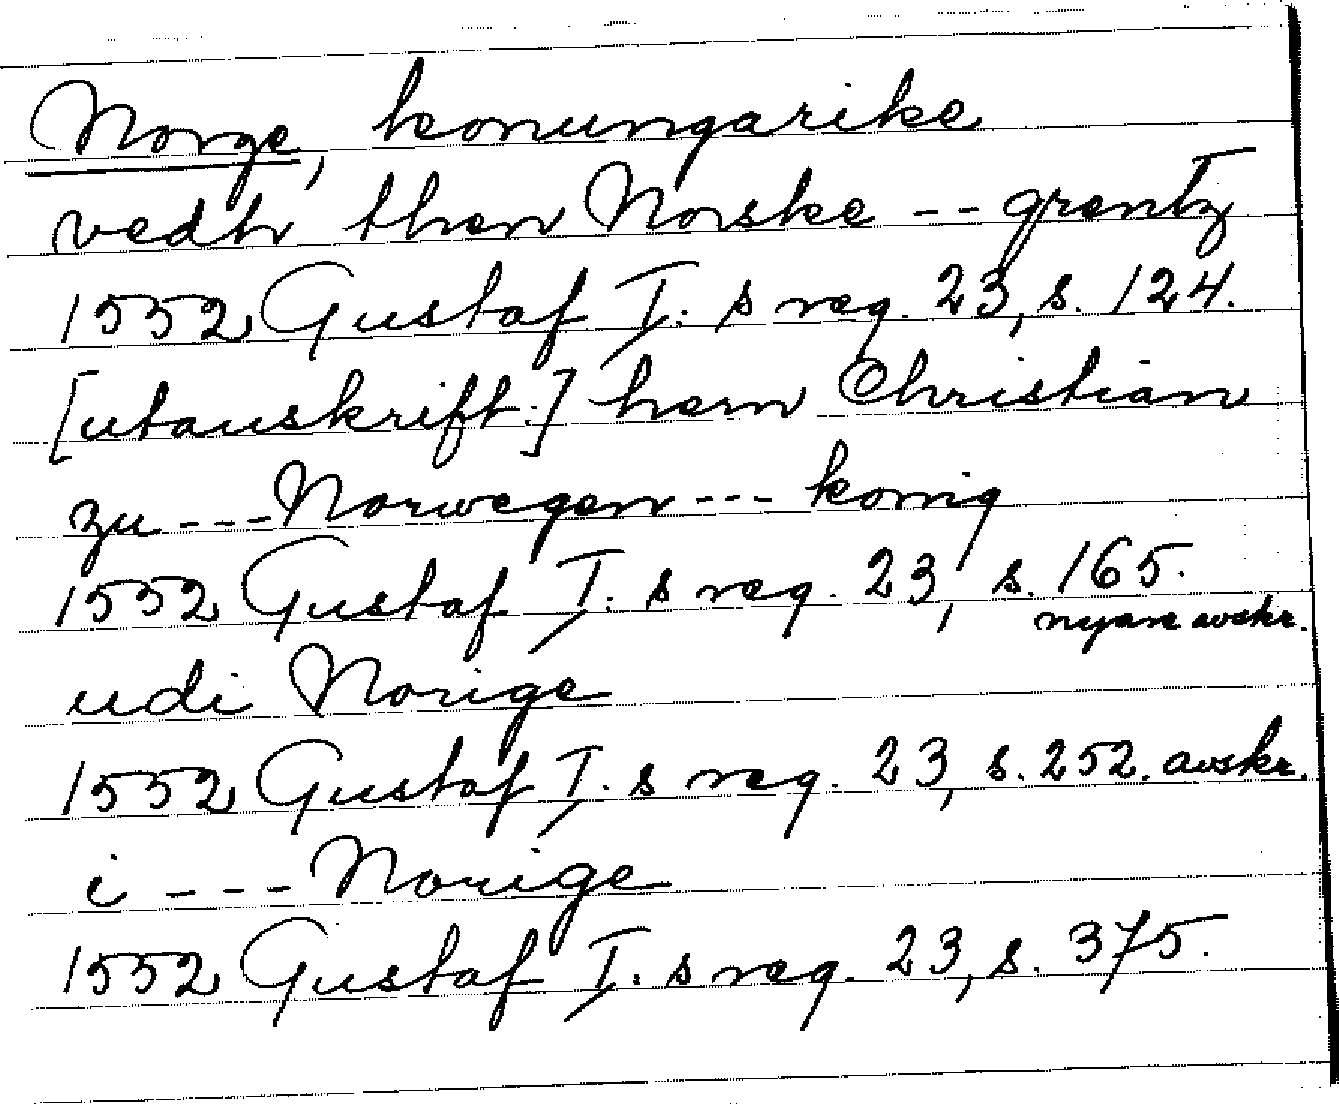 Norge, konungarike
vedh then Norske -- grentz
1552 Gustaf I:s reg. 23, s. 124.
[utanskrift:] hern Christian
zu --- Norwegen --- konig
1552 Gustaf I:s reg. 23, s. 165.
nyare avskr.
udi Norige
1552 Gustaf I:s reg. 23, s. 252. avskr.
i --- Norige
1552 Gustaf I:s reg. 23, s. 375.